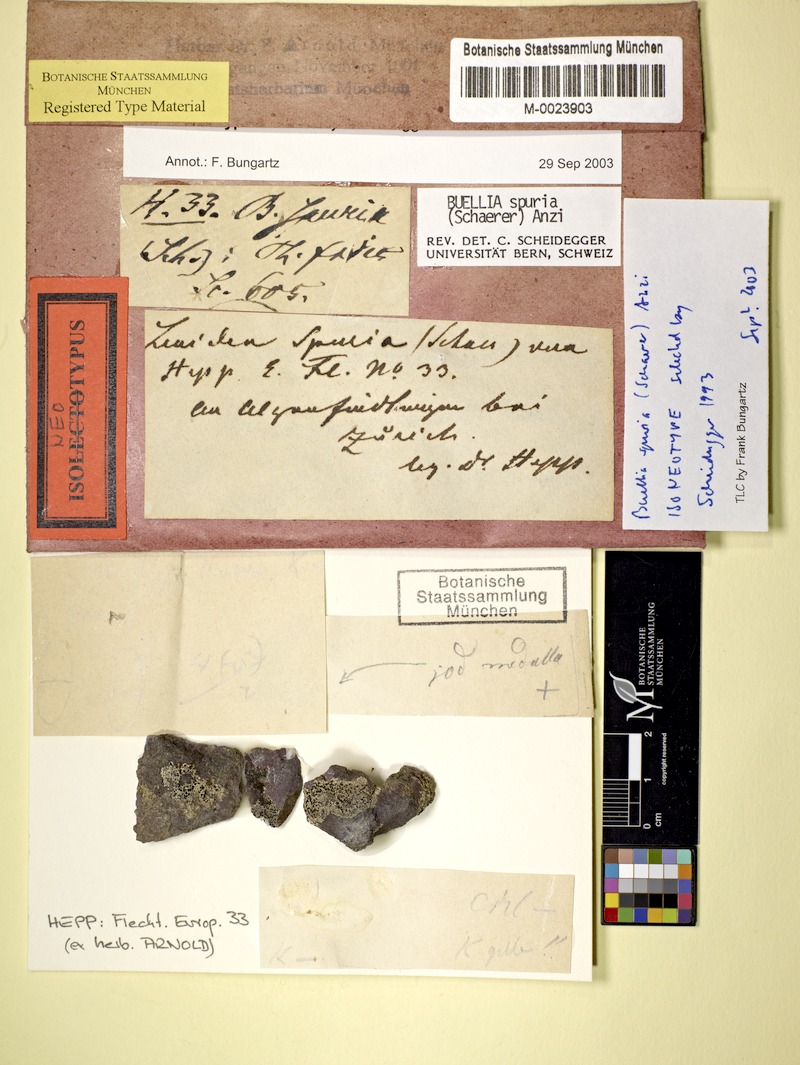 BOTANISCHE STAATSSAMMLUNG
MÜNCHEN
Registered Type Material
Botanische Staatssammlung München
M-0023903
Annot.: F. Bungartz 29 Sep 2003
H. 33. B. spuria
Sc. 605.
BUELLIA spuria
(Schaerer) Anzi
REV. DET. C. SCHEIDEGGER
UNIVERSITÄT BERN, SCHWEIZ
NEO
ISOLECTOTYPUS
Spuria (Schaer)
Hepp E. Fl. No 33.
bei
Zürich.
leg. Dr Hepp.
Buellia spuria (Schaerer) Anzi
ISONEOTYPE selected by
Scheidegger 1993
Sept. 2003
TLC by Frank Bungartz
Botanische
Staatssammlung
München
jod medulla
+
BOTANISCHE
STAATSSAMMLUNG
MÜNCHEN
copyright reserved
0 1 2
cm
HEPP: Flecht. Europ. 33
(ex herb. ARNOLD)
K –
K gelb !!